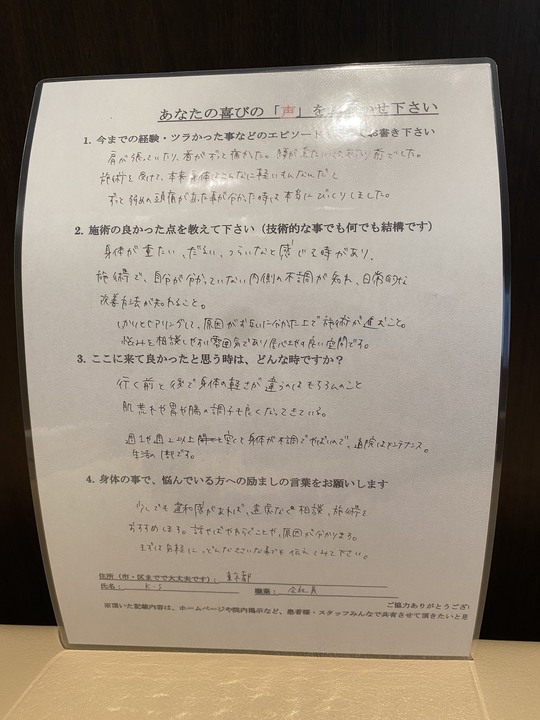 あなたの喜びの「声」を かせ下さい
1. 今までの経験・ツラかった事などのエピソード お書き下さい
肩が張っていたり、首がずっと痛かった。 前でした。
施術を受けて、本来身体はこんなに軽いもんなんだと
ずっと 頭痛があった事が分かった時は本当にびっくりしました。
2. 施術の良かった点を教えて下さい（技術的な事でも何でも結構です）
身体が重たい、だるい、つらいなと感じる時があり、
施術で、自分が分かっていない内側の不調が知れ、日常的な
改善方法が知れること。
しっかりヒアリングして、原因がお互いに分かった上で施術が進むこと。
悩みを相談しやすい雰囲気であり居心地も良い空間です。
3. ここに来て良かったと思う時は、どんな時ですか？
行く前と後で身体の軽さが違うのはもちろんのこと
肌荒れや胃や腸の調子も良くなってきている。
週1や週2以上 空くと身体が不調でやばいので、通院はメンテナンス。
生活の1部です。
4. 身体の事で、悩んでいる方への励ましの言葉をお願いします
少しでも違和感があれば、遠慮なく相談、施術を
おすすめします。話せばやわらぐことや、原因が分かります。
まずは気軽に、どんなささいな事でも伝えてみて下さい。
住所（市・区までで大丈夫です）： 東京都
氏名： K・S 職業： 会社員
ご協力ありがとうござい
※頂いた記載内容は、ホームページや院内掲示など、患者様・スタッフみんなで共有させて頂きたいと思